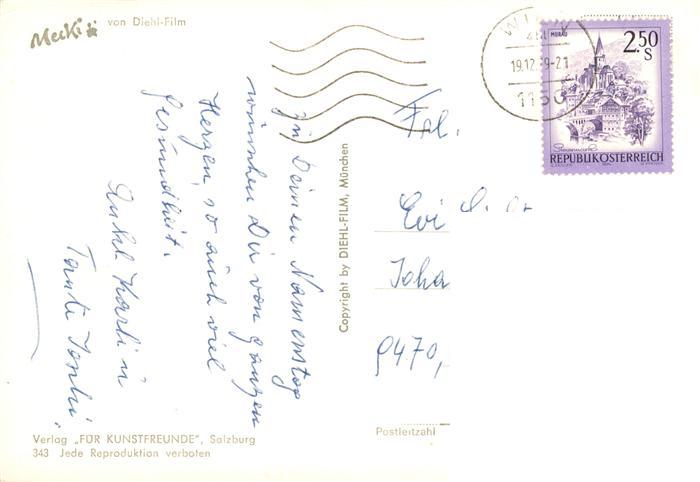 Mecki
von Diehl-Film
Zu Deinem Namenstag
wünschen Dir von ganzen
Herzen, so auch viel
Gesundheit.
Onkel Karli u
Tante
Verlag „FÜR KUNSTFREUNDE", Salzburg
343 Jede Reproduktion verboten
Copyright by DIEHL-FILM, München
WIEN
19.12.79-21
1150
MURAU
2.50
S
Steiermark
REPUBLIKÖSTERREICH
Frl.
Evi
Joha
9470,
Postleitzahl